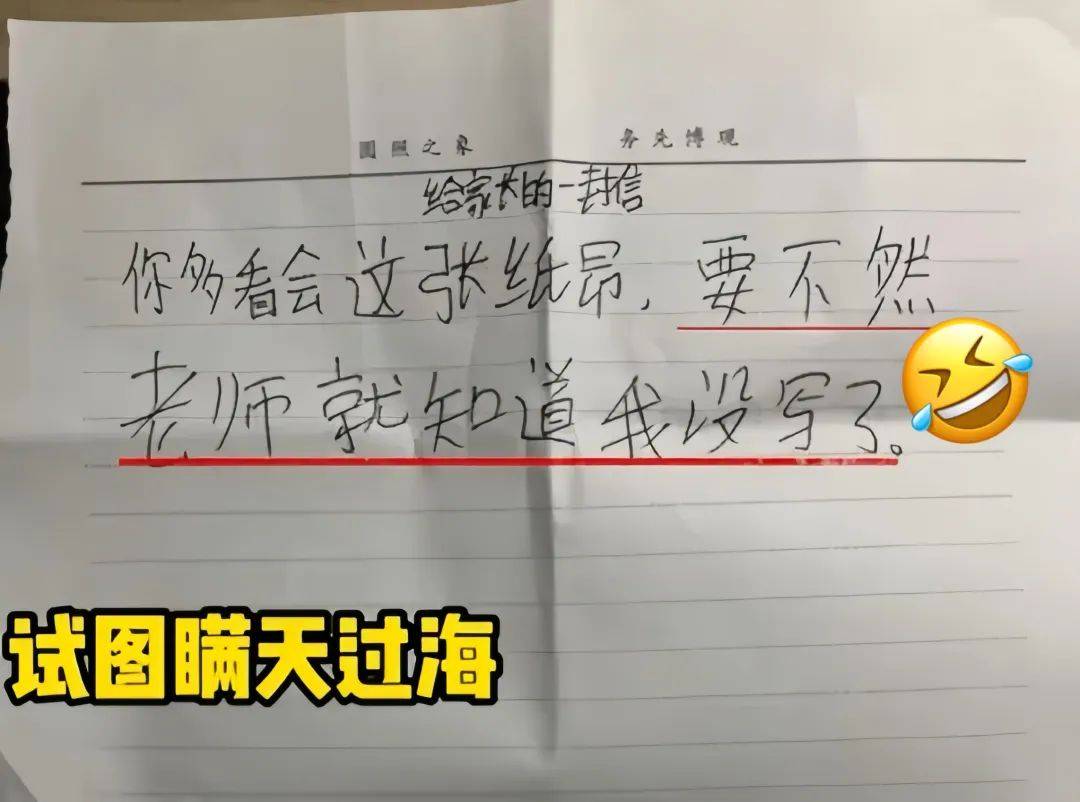 给家长的一封信
你多看会这张纸昂,要不然
老师就知道我没写了。
试图瞒天过海